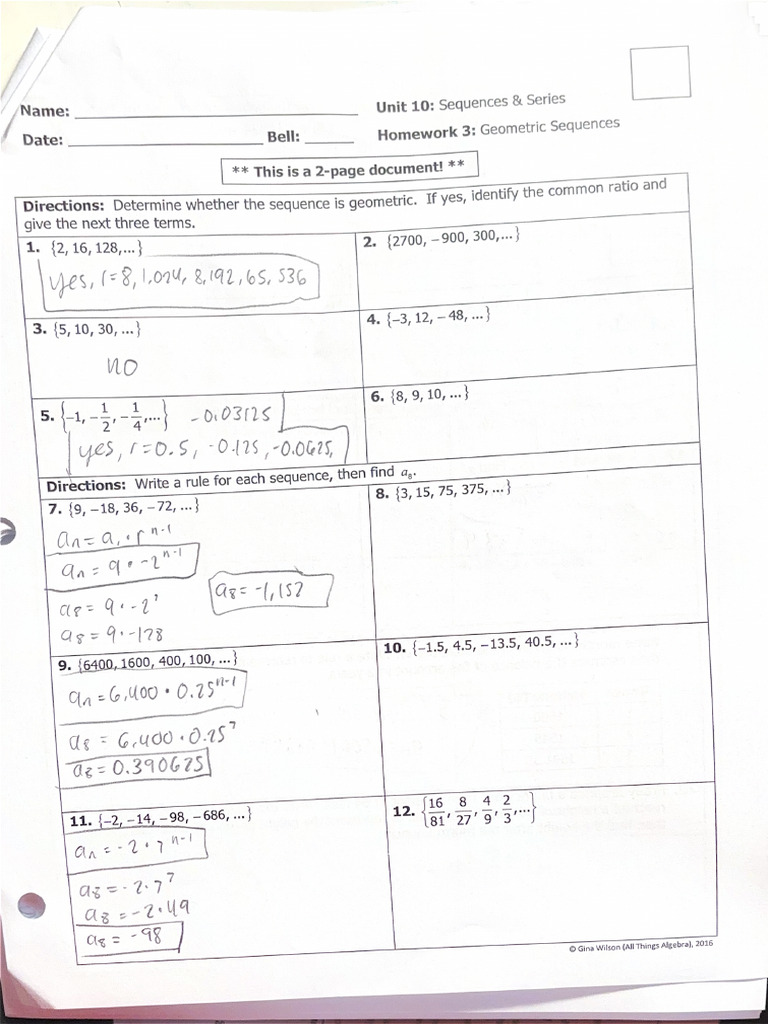 Name: ____________ Unit 10: Sequences & Series
Date: ____________ Bell: ____ Homework 3: Geometric Sequences
** This is a 2-page document! **
Directions: Determine whether the sequence is geometric. If yes, identify the common ratio and
give the next three terms.
1. {2, 16, 128,...}
yes, r=8, 1,024, 8,192, 65,536
2. {2700, −900, 300,...}
3. {5, 10, 30, ...}
no
4. {−3, 12, −48, ...}
5. {−1, −1/2, −1/4,...} -0.03125
yes, r=0.5, -0.125, -0.0625,
6. {8, 9, 10, ...}
Directions: Write a rule for each sequence, then find a₈.
7. {9, −18, 36, −72, ...}
aₙ = a₁ · rⁿ⁻¹
aₙ = 9 · -2ⁿ⁻¹
a₈ = 9 · -2⁷
a₈ = 9 · -128
a₈ = -1,152
8. {3, 15, 75, 375, ...}
9. {6400, 1600, 400, 100, ...}
aₙ = 6,400 · 0.25ⁿ⁻¹
a₈ = 6,400 · 0.25⁷
a₈ = 0.390625
10. {−1.5, 4.5, −13.5, 40.5, ...}
11. {−2, −14, −98, −686, ...}
aₙ = -2 · 7ⁿ⁻¹
a₈ = -2 · 7⁷
a₈ = -2 · 49
a₈ = -98
12. {16/81, 8/27, 4/9, 2/3,...}
© Gina Wilson (All Things Algebra), 2016